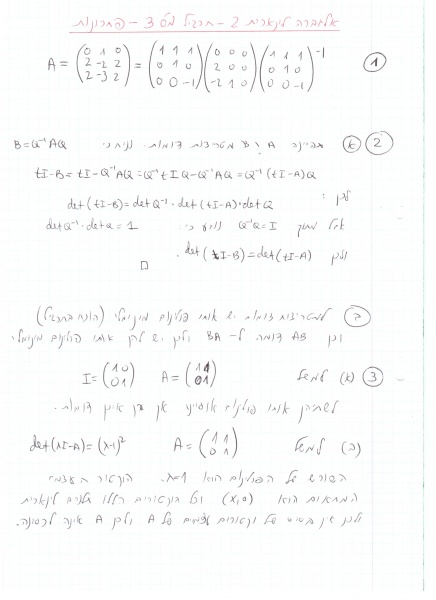 אלגברה לינארית 2 - תרגיל מס 3 - פתרונות
① A = (0 1 0; 2 -2 2; 2 -3 2) = (1 1 1; 0 1 0; 0 0 -1)(0 0 0; 2 0 0; -2 1 0)(1 1 1; 0 1 0; 0 0 -1)⁻¹
② (א) תהיינה A ו B מטריצות דומות. נניח כי B=Q⁻¹AQ
tI-B=tI-Q⁻¹AQ=Q⁻¹tIQ-Q⁻¹AQ=Q⁻¹(tI-A)Q
לכן: det(tI-B)=detQ⁻¹·det(tI-A)·detQ
אבל מתוך Q⁻¹Q=I נובע כי: detQ⁻¹·detQ=1
ולכן det(tI-B)=det(tI-A).
□
(ב) למטריצות דומות יש אותו פולינום מינימלי (הוכח בתרגיל)
וכן AB דומה ל-BA ולכן יש להן אותו פולינום מינימלי
③ (א) למשל A=(1 1; 0 1) I=(1 0; 0 1)
לשתיהן אותו פולינום אופייני אך הן אינן דומות.
(ב) למשל A=(1 1; 0 1) det(λI-A)=(λ-1)²
השורש של הפולינום הוא λ=1. הוקטור העצמי
המתאים הוא (x,0) וכל הוקטורים הללו תלויים לינארית
ולכן אין בסיס של וקטורים עצמיים של A ולכן A אינה לכסינה.